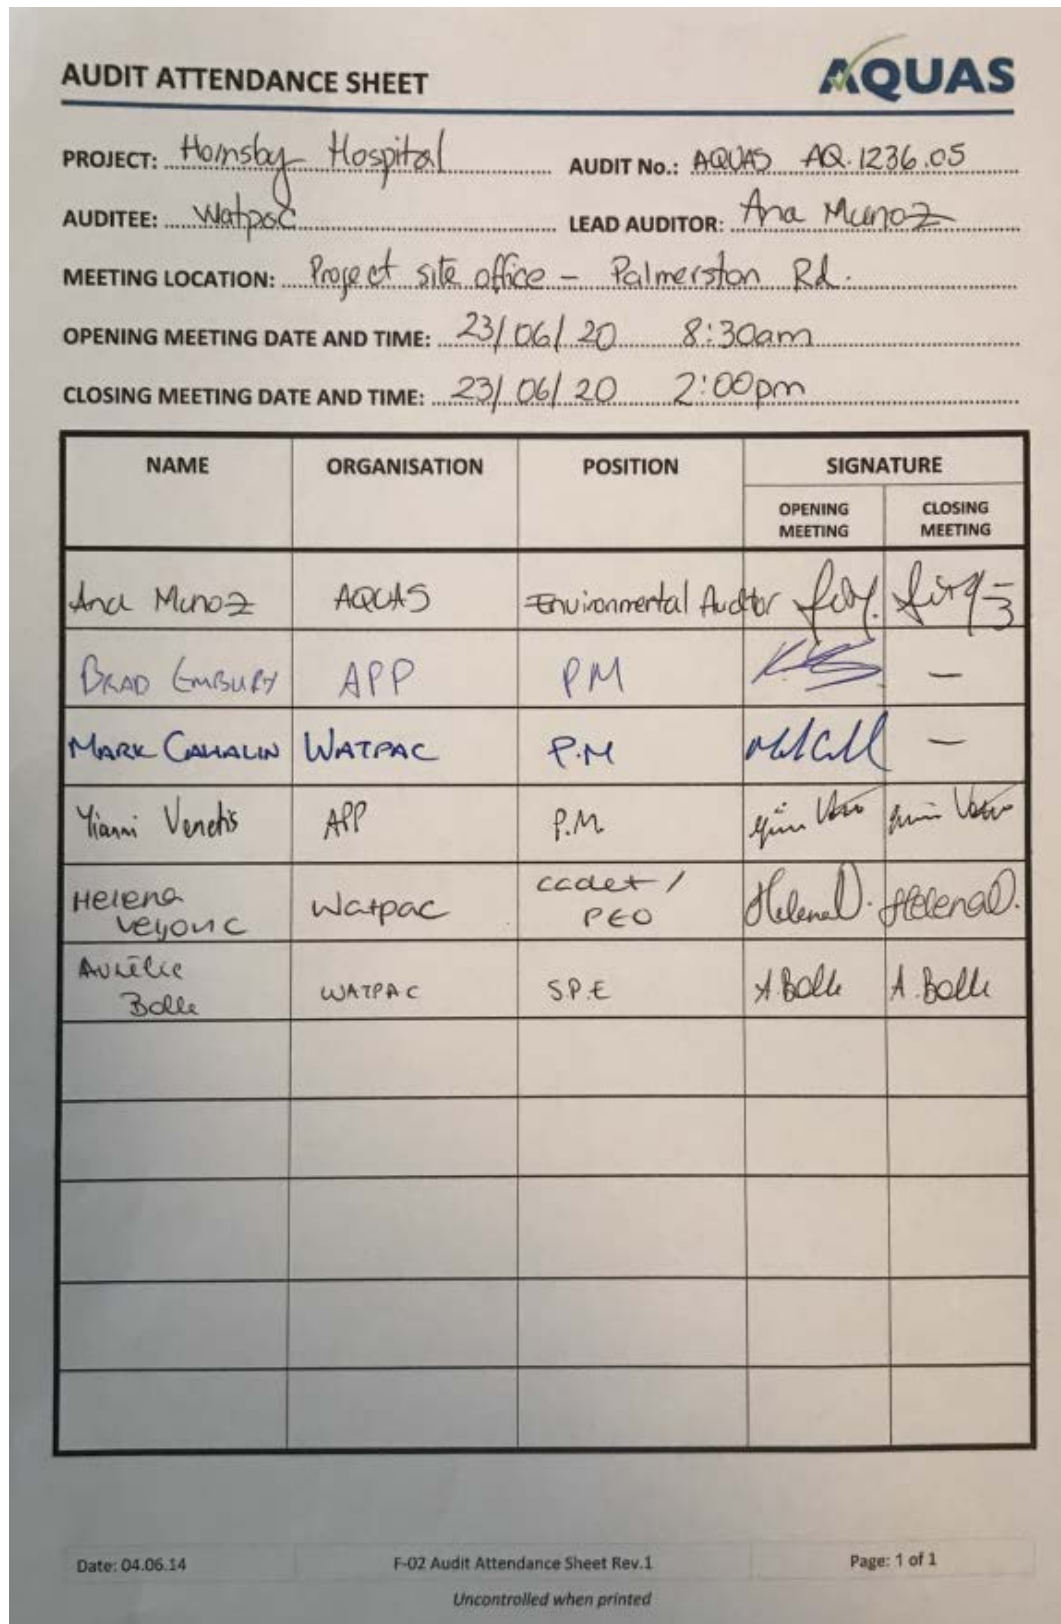 AUDIT ATTENDANCE SHEET
AQUAS
PROJECT: Hornsby Hospital AUDIT No.: AQUAS AQ.1236.05
AUDITEE: Watpac LEAD AUDITOR: Ana Munoz
MEETING LOCATION: Project site office - Palmerston Rd.
OPENING MEETING DATE AND TIME: 23/06/20 8:30am
CLOSING MEETING DATE AND TIME: 23/06/20 2:00pm
NAME ORGANISATION POSITION SIGNATURE
OPENING MEETING CLOSING MEETING
Ana Munoz AQUAS Environmental Auditor
BRAD EMBURY APP PM –
MARK CAHALIN WATPAC P.M –
Yianni Venetis APP P.M.
Helena WATPAC cadet / PEO HelenaD. HelenaD.
Aurélie Bolle WATPAC S.P.E A.Bolle A.Bolle
Date: 04.06.14 F-02 Audit Attendance Sheet Rev.1 Page: 1 of 1
Uncontrolled when printed